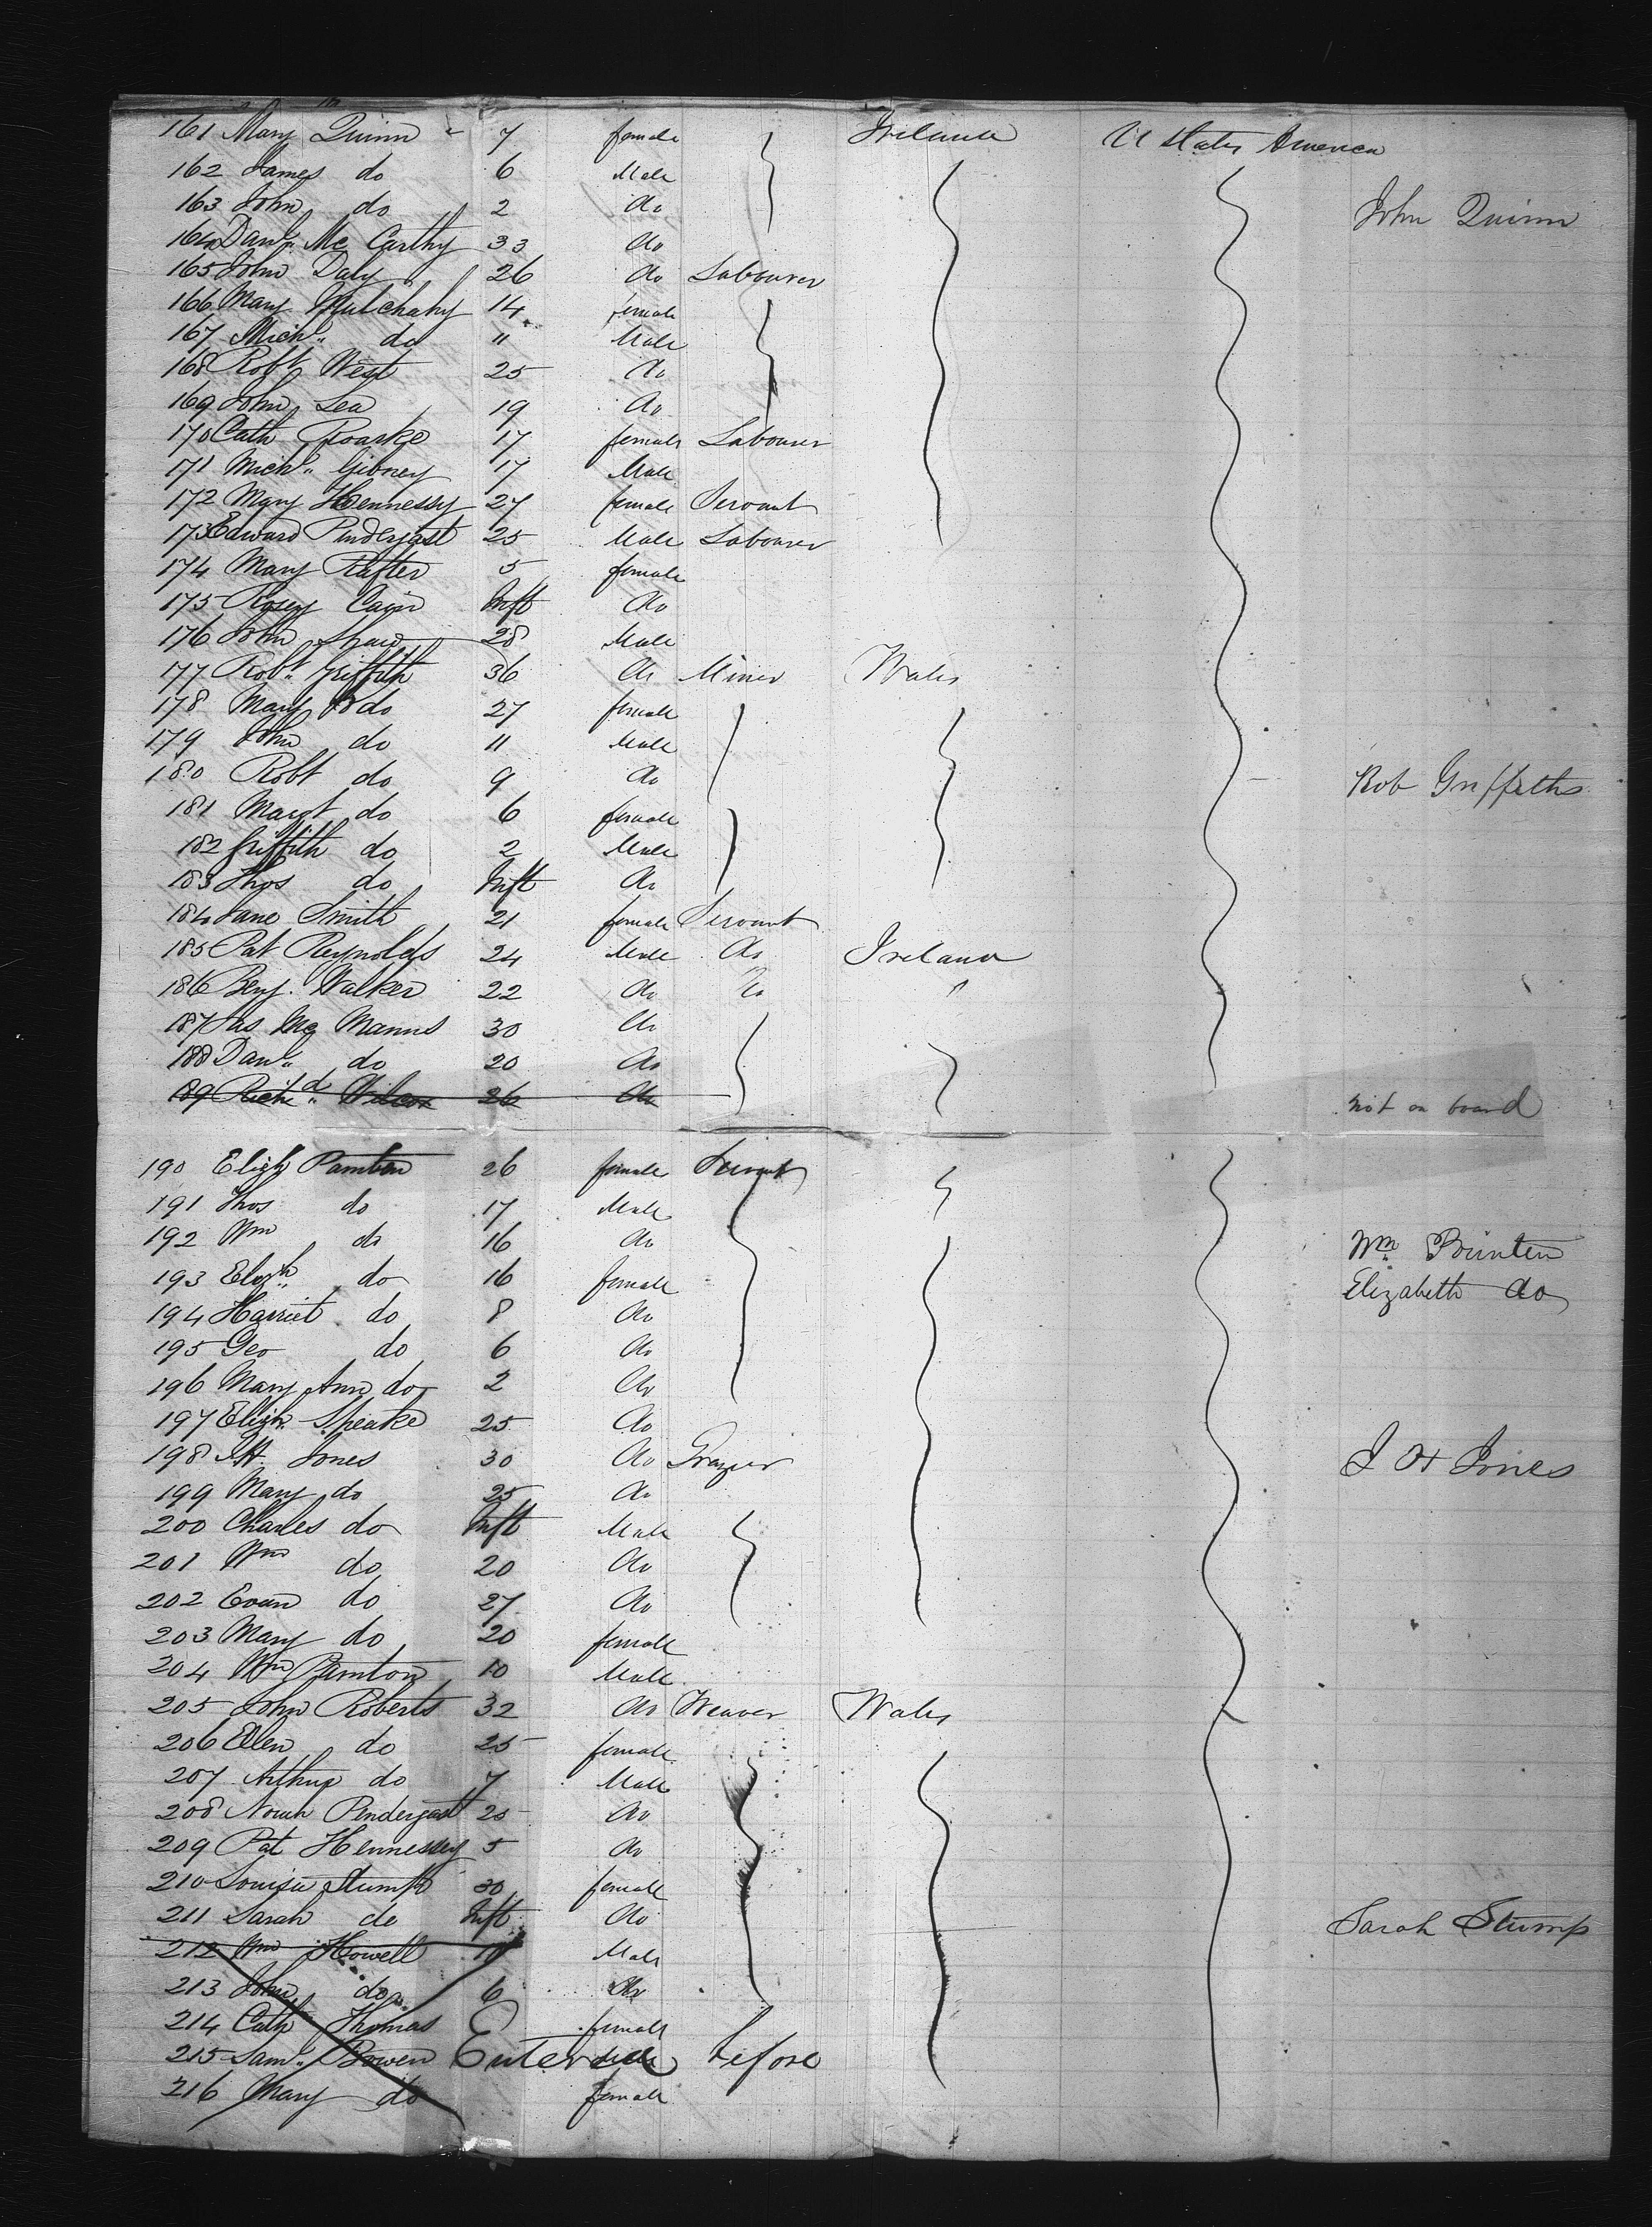 161 Mary Quinn 7 female Ireland U States America
162 James do 6 Male
163 John do 2 do John Quinn
164 Danl. Mc Carthy 33 do
165 John Daly 26 do Labourer
166 Mary Mulchahy 14 female
167 Michl. do 11 Male
168 Robt West 25 do
169 John Lea 19 do
170 Cath Roarke 17 female Labourer
171 Michl. Gibney 17 Male
172 Mary Hennessy 27 female Servant
173 Edward Pindergast 25 Male Labourer
174 Mary Rafter 5 female
175 Rosey Cain Inft do
176 John Shaw 28 Male
177 Robt. Griffith 36 do Miner Wales
178 Mary do 27 female
179 John do 11 Male
180 Robt do 9 do Rob Griffiths
181 Margt do 6 female
182 Griffith do 2 Male
183 Thos do Inft do
184 Jane Smith 21 female Servant
185 Pat Reynolds 24 Male do Ireland
186 Benj. Walker 22 do do "
187 Jas Mc Manus 30 do
188 Danl. do 20 do
189 Richd. Wilcox 26 do not on board
190 Elizh 26 female Servant
191 Thos do 17 Male
192 Wm do 16 do Wm Pointen
193 Elizh. do 16 female Elizabeth do
194 Harriet do 8 do
195 Geo do 6 do
196 Mary Ann do 2 do
197 Elizh. Speake 25 do
198 J H. Jones 30 do Grazier J H Jones
199 Mary do 25 do
200 Charles do Inft Male
201 Wm do 20 do
202 Evan do 27 do
203 Mary do 20 female
204 Wm 10 Male
205 John Roberts 32 do Weaver Wales
206 Ellen do 25 female
207 Arthur do 7 Male
208 Pendergast 25 do
209 Pat Hennessey 5 do
210 Louisa Stump 30 female
211 Sarah do Inft do Sarah Stump
212 Wm Howell 10 Male
213 John do 6 do
214 Cath Thomas female
215 Saml. Bowen Entered before
216 Mary do female